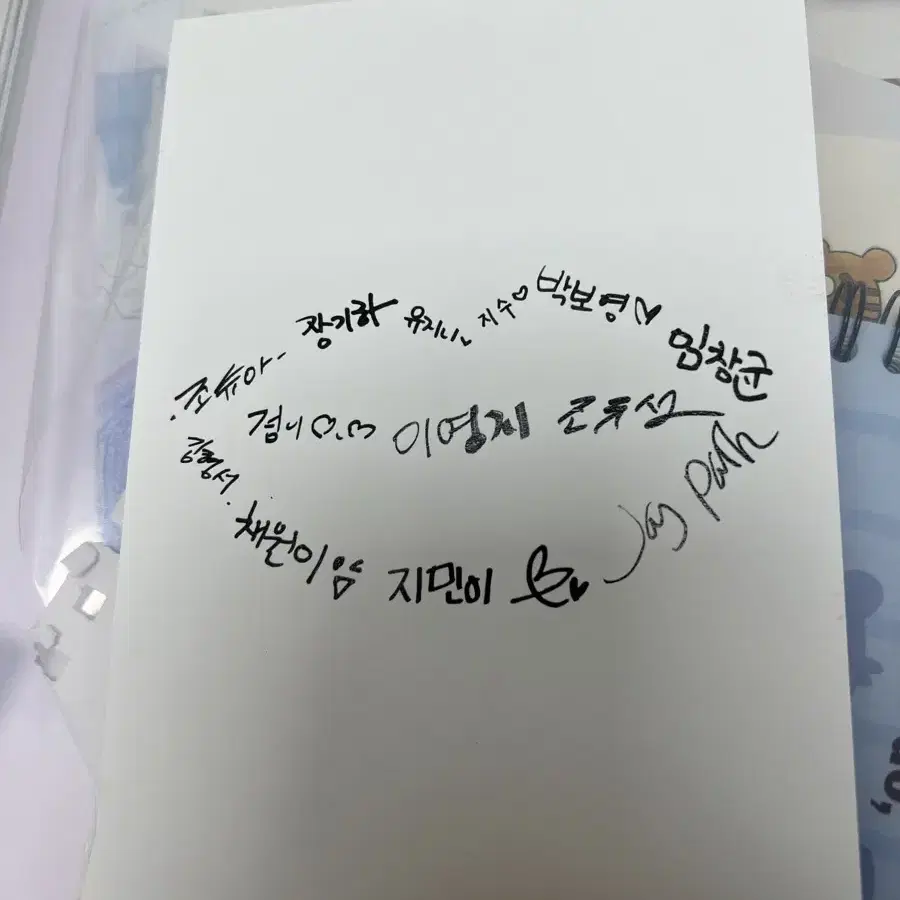 장기하
유지니
지수♡
박보영♡
임창균
조유아-
겸이♡.♡
이영지
채원이
지민이
Jay Park